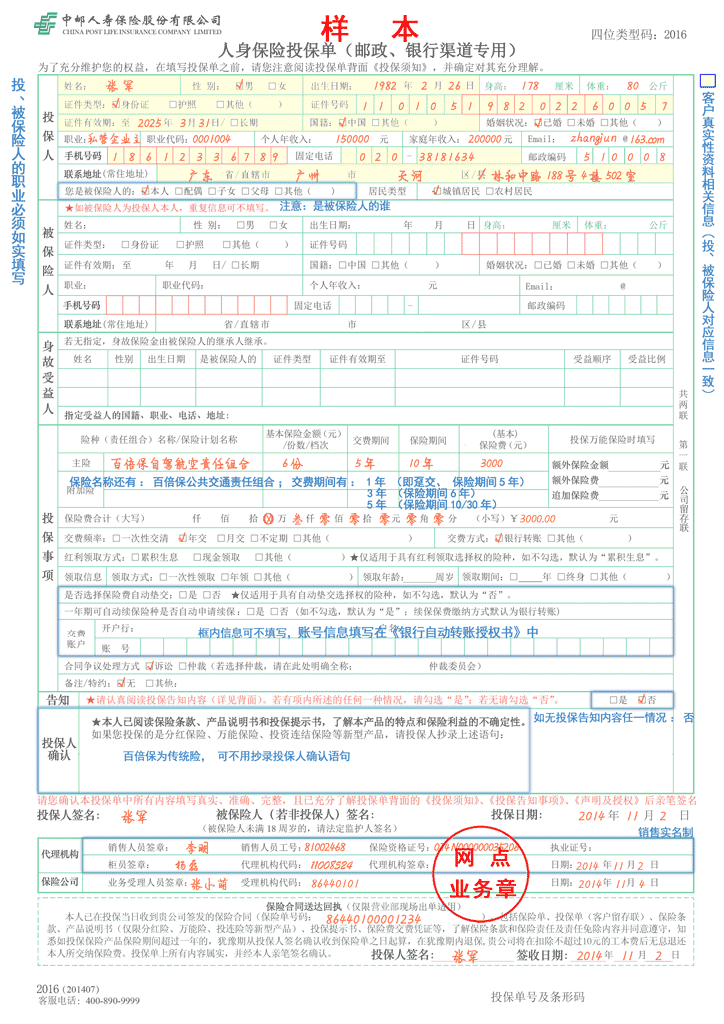 中邮人寿保险股份有限公司
CHINA POST LIFE INSURANCE COMPANY LIMITED
样 本
四位类型码：2016
人身保险投保单（邮政、银行渠道专用）
为了充分维护您的权益，在填写投保单之前，请您注意阅读投保单背面《投保须知》，并确定对其充分理解。
投、被保险人的职业必须如实填写
客户真实性资料相关信息（投、被保险人对应信息一致）
投保人
姓名： 张军 性 别：☑男 □女 出生日期： 1982 年 2 月 26 日 身高： 178 厘米 体重： 80 公斤
证件类型：☑身份证 □护照 □其他（ ） 证件号码 110105198202260057
证件有效期：至 2025 年 3 月 31 日/□长期 国籍：☑中国 □其他（ ） 婚姻状况：☑已婚 □未婚 □其他（ ）
职业：私营企业主 职业代码：0001004 个人年收入： 150000 元 家庭年收入：200000元 Email： zhangjun @163.com
手机号码 18612336789 固定电话 020-38181634 邮政编码 510008
联系地址(常住地址) 广东 省/直辖市 广州 市 天河 区/县 林和中路188号4楼502室
您是被保险人的：☑本人 □配偶 □子女 □父母 □其他（ ） 居民类型 ☑城镇居民 □农村居民
被保险人
★如被保险人为投保人本人，重复信息可不填写。 注意：是被保险人的谁
姓名： 性 别：□男 □女 出生日期： 年 月 日 身高： 厘米 体重： 公斤
证件类型：□身份证 □护照 □其他（ ） 证件号码
证件有效期：至 年 月 日/□长期 国籍：□中国 □其他（ ） 婚姻状况：□已婚 □未婚 □其他（ ）
职业： 职业代码： 个人年收入： 元 Email： @
手机号码 固定电话 - 邮政编码
联系地址(常住地址) 省/直辖市 市 区/县
身故受益人
若无指定，身故保险金由被保险人的继承人继承。
姓名 性别 出生日期 是被保险人的 证件类型 证件有效期至 证件号码 受益顺序 受益比例
指定受益人的国籍、职业、电话、地址：
共两联 第一联 公司留存联
投保事项
险种（责任组合）名称/保险计划名称 基本保险金额(元)/份数/档次 交费期间 保险期间 (基本)保险费(元) 投保万能保险时填写
主险 百倍保自驾航空责任组合 6份 5年 10年 3000 额外保险金额 元
保险名称还有： 百倍保公共交通责任组合； 交费期间有： 1 年 （即趸交、 保险期间 5 年） 额外保险费 元
附加险 3 年 （保险期间 6 年） 追加保险费 元
5 年 （保险期间 10/30 年）
保险费合计（大写） 仟 佰 拾 万 叁仟零佰零拾零元零角零分 （小写）￥3000.00 元
交费频率：□一次性交清 ☑年交 □月交 □不定期 □其他（ ） 交费方式：☑银行转账 □其他（ ）
红利领取方式：□累积生息 □现金领取 □其他（ ）★仅适用于具有红利领取选择权的险种，如不勾选，默认为“累积生息”。
领取信息 领取方式：□一次性领取 □年领 □其他（ ） 领取年龄：____周岁 领取期间：□____年 □终身 □其他（ ）
是否选择保险费自动垫交：□是 □否 ★仅适用于具有自动垫交选择权的险种，如不勾选，默认为“否”。
一年期可自动续保险种是否自动申请续保：□是 □否（如不勾选，默认为“是”；续保保费缴纳方式默认为银行转账）
交费账户 开户行：
框内信息可不填写，账号信息填写在《银行自动转账授权书》中
账 号
合同争议处理方式 ☑诉讼 □仲裁（若选择仲裁，请在此处明确全称： 仲裁委员会）
备注/特约：☑无 □其他：
告知 ★请认真阅读投保告知内容（详见背面）。若有项内所述的任何一种情况，请勾选“是”；若无请勾选“否”。 □是 ☑否
如无投保告知内容任一情况 ： 否
投保人确认
★本人已阅读保险条款、产品说明书和投保提示书，了解本产品的特点和保险利益的不确定性。
如果您投保的是分红保险、万能保险、投资连结保险等新型产品，请投保人抄录上述语句：
百倍保为传统险， 可不用抄录投保人确认语句
请您确认本投保单中所有内容填写真实、准确、完整，且已充分了解投保单背面的《投保须知》、《投保告知事项》、《声明及授权》后亲笔签名
投保人签名： 张军 被保险人（若非投保人）签名： 投保日期： 2014 年 11 月 2 日
（被保险人未满 18 周岁的，请法定监护人签名）
销售实名制
代理机构 销售人员签章： 李明 销售人员工号：81002468 保险资格证号： 执业证号：
柜员签章： 杨磊 代理机构代码：11008524 代理机构签章： 日期：2014 年 11 月 2 日
网 点
业务章
保险公司 业务受理人员签章：张小萌 受理机构代码： 86440101 日期：2014 年 11 月 4 日
保险合同送达回执（仅限营业部现场出单适用）
本人已在投保当日收到贵公司签发的保险合同（保险单号码： 86440100001234 ），包括保险单、投保单（客户留存联）、保险条
款、产品说明书（仅限分红险、万能险、投连险等新型产品）、投保提示书、保险费交费凭证等，了解保险条款和保险责任及责任免除内容并同意遵守，知
悉如投保保险产品保险期间超过一年的，犹豫期从投保人签名确认收到保险单之日起算，在犹豫期内退保，贵公司将在扣除不超过10元的工本费后无息退还
本人所交纳保险费。投保单上所有内容属实，并经本人亲笔签名确认。 投保人签名： 张军 签收日期：2014 年 11 月 2 日
2016 (201407)
客服电话：400-890-9999
投保单号及条形码